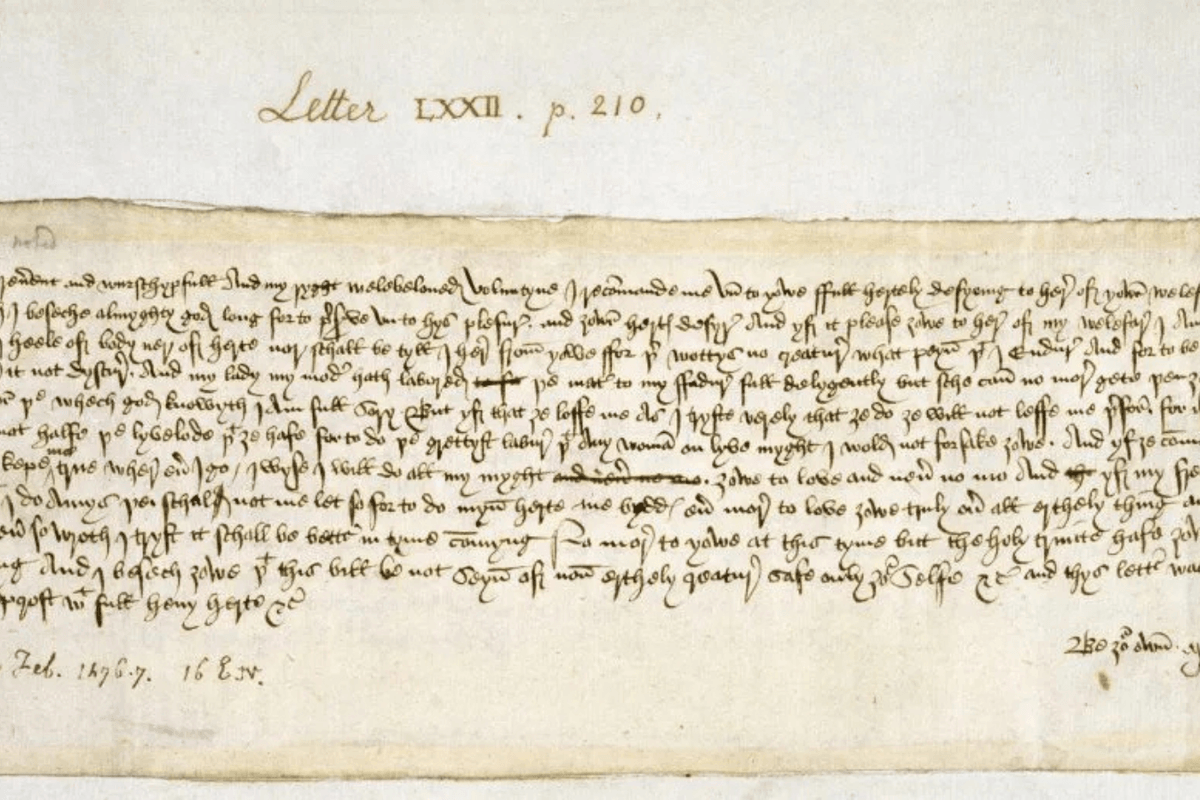 Letter LXXII . p. 210.
and wurschypfull And my ryght welebeloued Voluntyne I recōmande me vn to yowe ffull hertely desyring to her̄ off yowr̄
I beseche almyghty god long for to p̄serve vn to hys plesur̄ and ȝowr̄ hertꝭ desyr̄ And yff it please ȝowe to her̄ off my welefar̄ I
heele off body ner off herte nor schall be tyll I her̄ ffrom yowe ffor þr̄ wottys no creatur̄ what peyn þt I Endur̄ And for to be
it not dyscur̄. And my lady my modr̄ hath labored þe matr̄ to my ffadur full delygently but sche can no mor̄ gete þen
þe whech god knowyth I Am full Sory But yff that ȝe loffe me As I tryste verely that ȝe do ȝe will not leffe me þrfor̄ for
not halfe þe lyvelode þt ȝe hafe for to do þe grettyst labur̄ þt Any woman on lyve myght I wold not forsake ȝowe. And yf ȝe
kepe me true wher eūr I go / I wyse I will do all my myght ȝowe to love and neūr no mo And yff my
I do Amys þei schall not me let so for to do myn herte me eūr mor̄ to love ȝowe truly oūr all erthely thing
so wroth I tryst it schall be bettr̄ in tyme cōmyng No mor̄ to yowe at this tyme but the holy trinite hafe
And I besech ȝowe þt this bill be not Seyn off non erthely creatur̄ Safe only ȝor̄ Selfe &c̄ and thys lettr̄
wt full heuy herte &c̄
Be ȝor own
Feb. 1476.7. 16 E. IV.